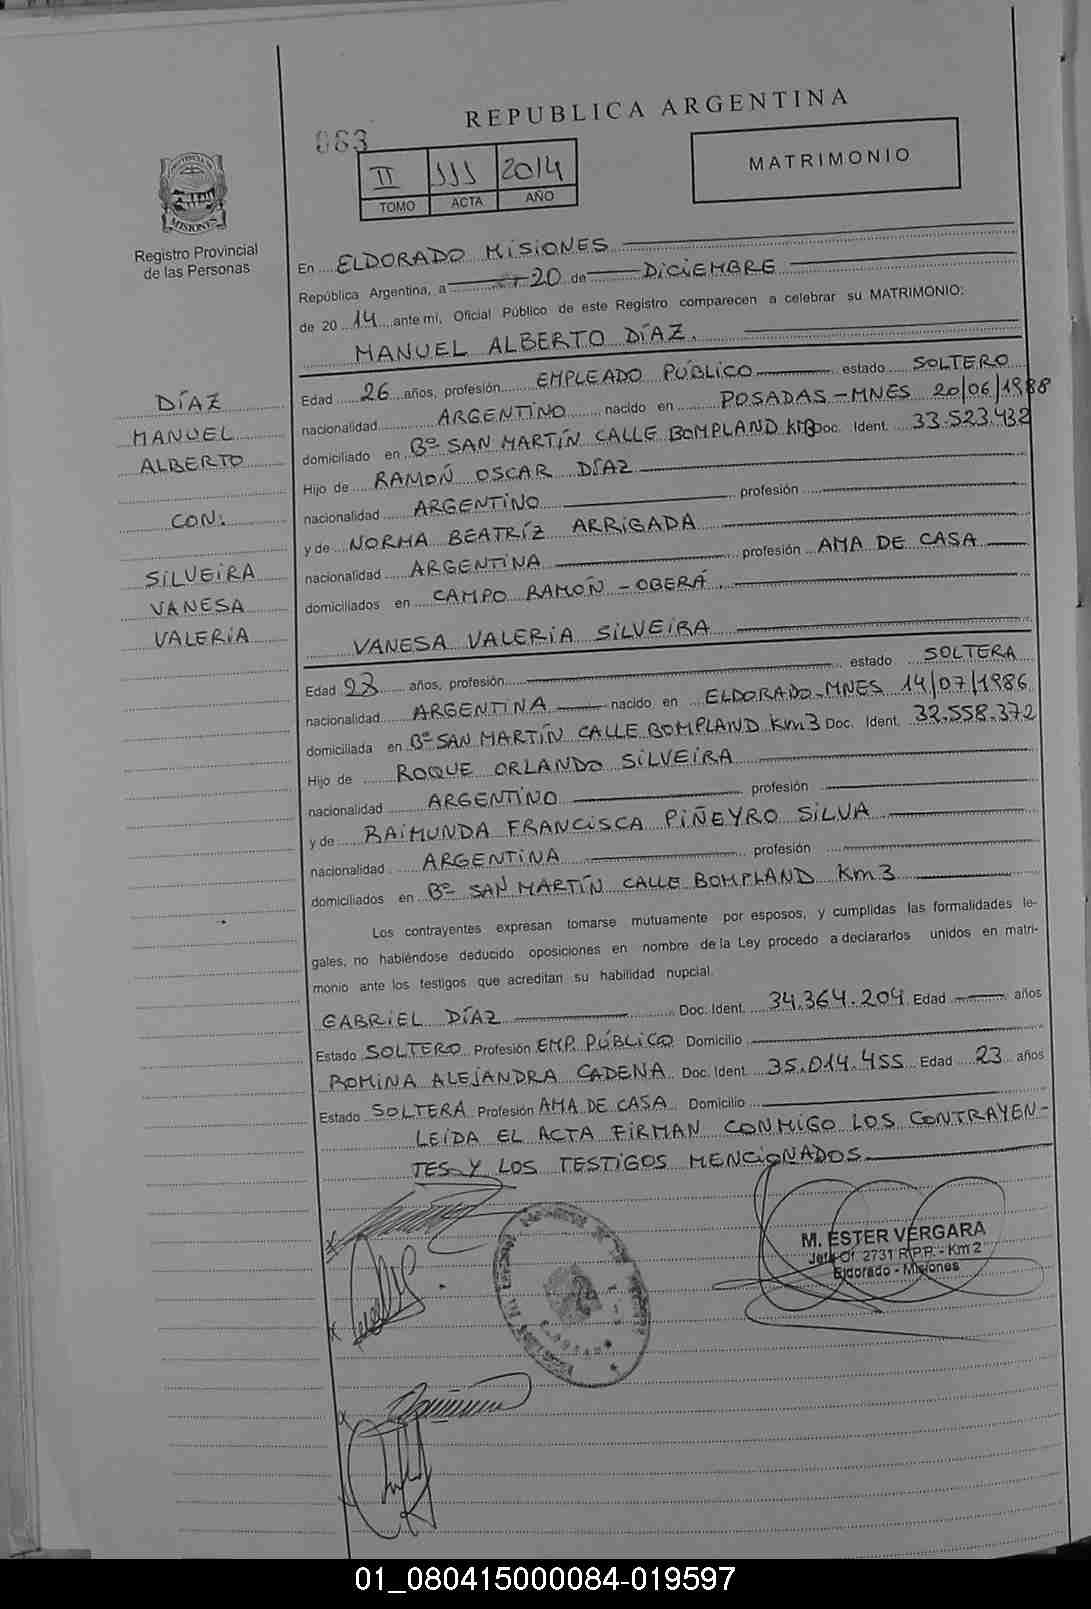 REPUBLICA ARGENTINA
063
II
111
2014
TOMO
ACTA
AÑO
MATRIMONIO
PROVINCIA DE
MISIONES
Registro Provincial
de las Personas
En ELDORADO MISIONES
República Argentina, a 20 de DICIEMBRE
de 20 14 ante mi, Oficial Público de este Registro comparecen a celebrar su MATRIMONIO:
MANUEL ALBERTO DÍAZ.
DÍAZ
MANUEL
ALBERTO
CON:
SILVEIRA
VANESA
VALERIA
Edad 26 años, profesión EMPLEADO PÚBLICO estado SOLTERO
nacionalidad ARGENTINO nacido en POSADAS - MNES 20/06/1988
domiciliado en Bº SAN MARTÍN CALLE BOMPLAND KM3 Doc. Ident. 33.523.432
Hijo de RAMOÑ OSCAR DÍAZ
nacionalidad ARGENTINO profesión
y de NORMA BEATRÍZ ARRIGADA
nacionalidad ARGENTINA profesión AMA DE CASA
domiciliados en CAMPO RAMOÑ - OBERÁ
VANESA VALERIA SILVEIRA
Edad 28 años, profesión estado SOLTERA
nacionalidad ARGENTINA nacido en ELDORADO-MNES 14/07/1986
domiciliada en Bº SAN MARTÍN CALLE BOMPLAND Km3 Doc. Ident. 32.558.372
Hijo de ROQUE ORLANDO SILVEIRA
nacionalidad ARGENTINO profesión
y de RAIMUNDA FRANCISCA PIÑEYRO SILVA
nacionalidad ARGENTINA profesión
domiciliados en Bº SAN MARTÍN CALLE BOMPLAND Km3
Los contrayentes expresan tomarse mutuamente por esposos, y cumplidas las formalidades le-
gales, no habiéndose deducido oposiciones en nombre de la Ley procedo a declararlos unidos en matri-
monio ante los testigos que acreditan su habilidad nupcial.
GABRIEL DÍAZ Doc. Ident. 34.364.204 Edad años
Estado SOLTERO Profesión EMP. PÚBLICO Domicilio
ROMINA ALEJANDRA CADENA Doc. Ident. 35.014.455 Edad 23 años
Estado SOLTERA Profesión AMA DE CASA Domicilio
LEIDA EL ACTA FIRMAN CONMIGO LOS CONTRAYEN-
TES Y LOS TESTIGOS MENCIONADOS
M. ESTER VERGARA
Jefe Of. 2731 R.P.P. - Km 2
Eldorado - Misiones
01_080415000084-019597